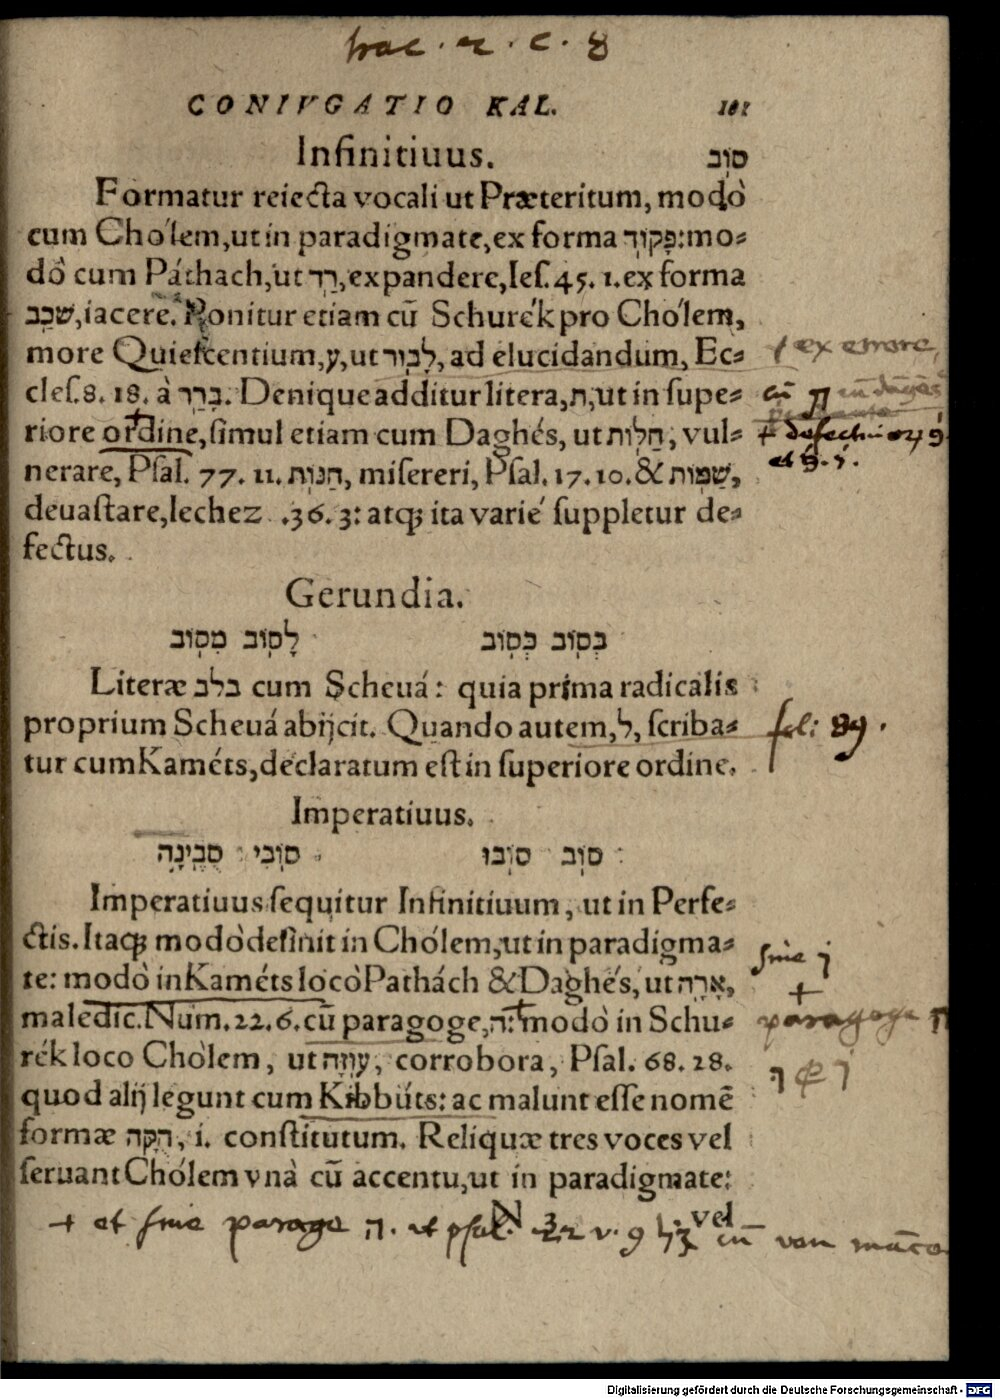 CONIVGATIO KAL. 181
Infinitiuus. סוֹב
Formatur reiecta vocali ut Præteritum, modò
cum Chólem, ut in paradigmate, ex forma פָּקוֹד: mo-
dò cum Páthach, ut רַד, expandere, Ies. 45. 1. ex forma
שׁכַב, iacere. Ponitur etiam cũ Schurék pro Chólem,
more Quiescentium, ץ, ut לָבוּר, ad elucidandum, Ec-
cles. 8. 18. à בָּרַר. Denique additur litera, ת, ut in supe-
riore ordine, simul etiam cum Daghés, ut חַלּוֹת, vul-
nerare, Psal. 77. 11. חַנּוֹת, misereri, Psal. 17. 10. & שַׁמּוֹת,
deuastare, Iechez .36. 3: atq; ita varié suppletur de-
fectus.
Gerundia.
בְּסוֹב כְּסוֹב לָסוֹב מִסוֹב
Literæ בלב cum Scheuá: quia prima radicalis
proprium Scheuá abijcit. Quando autem, ל, scriba-
tur cum Kaméts, declaratum est in superiore ordine.
fol: 89.
Imperatiuus.
סוֹב סוֹבּוּ סוֹבִּי סֻבֶּינָה
Imperatiuus sequitur Infinitiuum, ut in Perfe-
ctis. Itaq; modò desinit in Chólem, ut in paradigma-
te: modò in Kaméts locò Pathách & Daghés, ut אָרָה,
maledic. Num. 22. 6. cũ paragoge, ה: modò in Schu-
paragoge ה
rék loco Chòlem, ut עוּזָּה, corrobora, Psal. 68. 28.
quod alij legunt cum Kibbúts: ac malunt esse nomẽ
formæ חֻקָּה, i. constitutum. Reliquæ tres voces vel
seruant Chólem vnà cũ accentu, ut in paradigmate:
N 3 vel
Digitalisierung gefördert durch die Deutsche Forschungsgemeinschaft - DFG